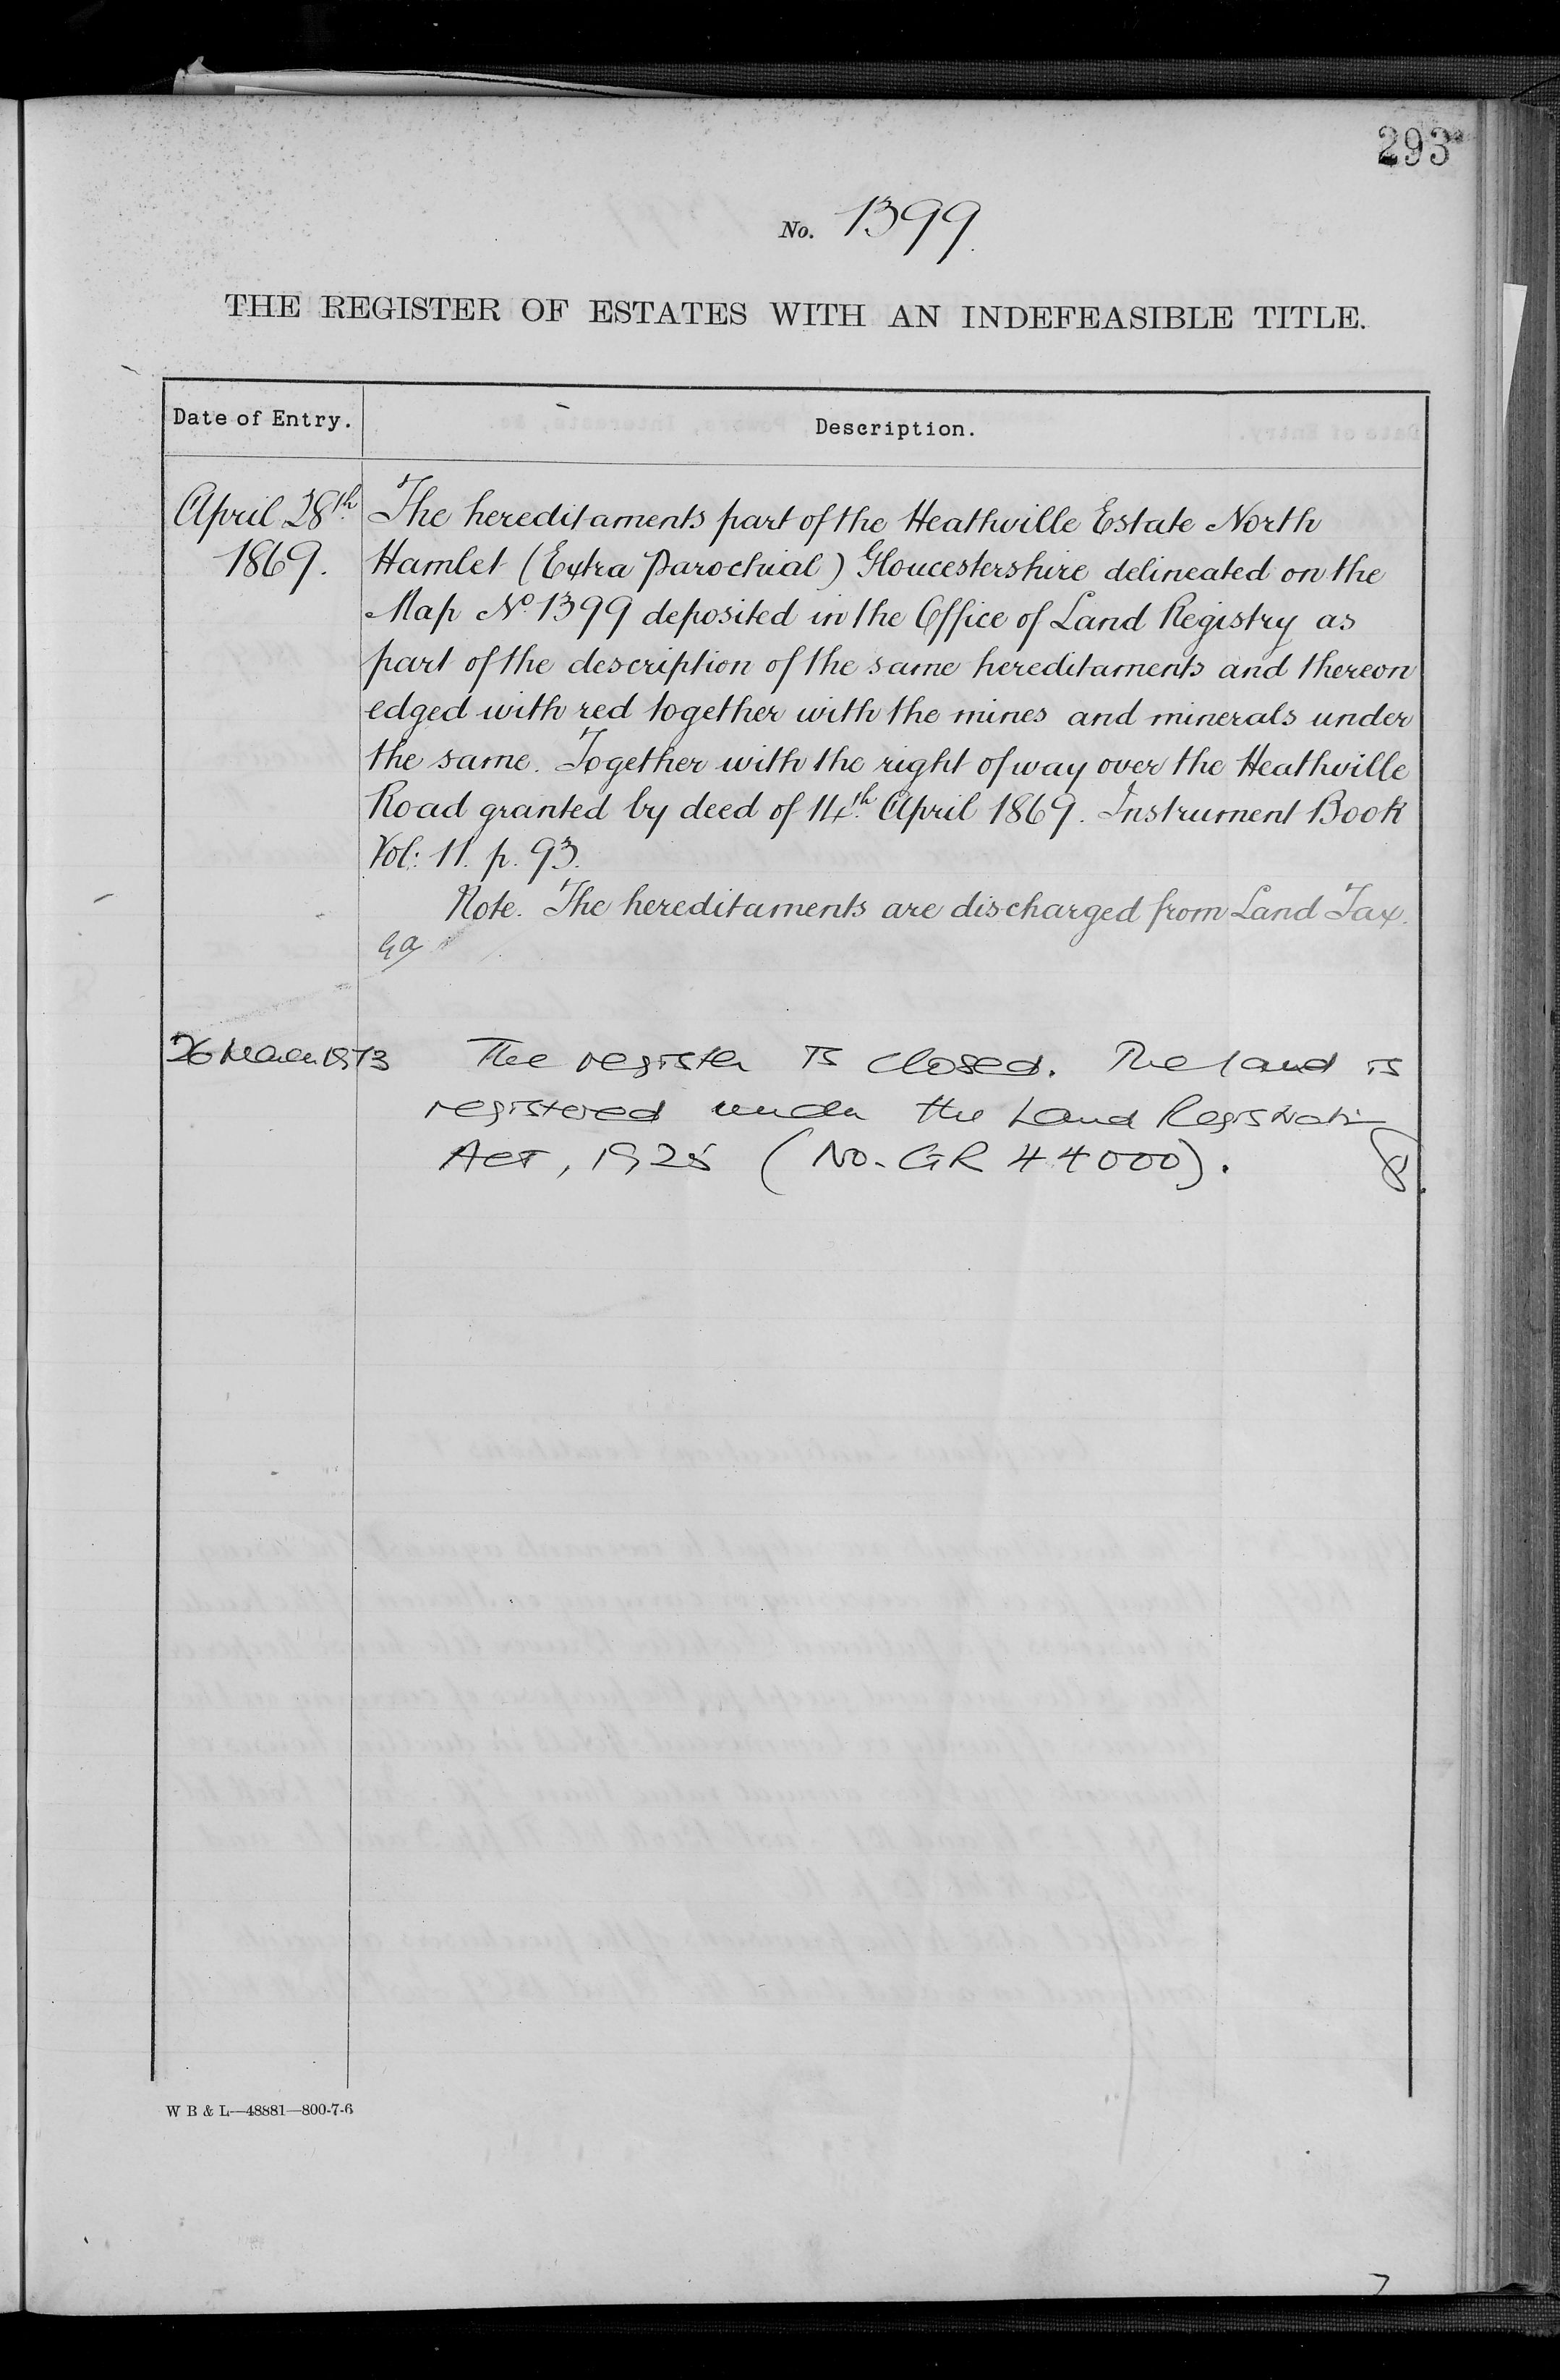 293
No. 1399.
THE REGISTER OF ESTATES WITH AN INDEFEASIBLE TITLE.
Date of Entry.
Description.
April 28th
1869.
The hereditaments part of the Heathville Estate North
Hamlet (Extra Parochial) Gloucestershire delineated on the
Map No. 1399 deposited in the Office of Land Registry as
part of the description of the same hereditaments and thereon
edged with red together with the mines and minerals under
the same. Together with the right of way over the Heathville
Road granted by deed of 14th April 1869. Instrument Book
Vol: 11. p. 93.
Note. The hereditaments are discharged from Land Tax.
26 March 1973
The register is closed. The land is
registered under the Land Registration
Act, 1925 (No. GR 44000).
W B & L—48881—800-7-6